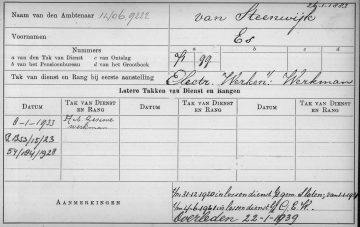 Naam van den Ambtenaar 12/06.9222 van Steenwijk
Voornamen Es
Nummers
a van den Tak van Dienst c van Ontslag
b van het Pensioenbureau d van het Grootboek
a b c d
79 99
Tak van dienst en Rang bij eerste aanstelling Electr. Werken". Werkman
Latere Takken van Dienst en Rangen
DATUM TAK VAN DIENST EN RANG DATUM TAK VAN DIENST EN RANG DATUM TAK VAN DIENST EN RANG
8-1-1933
werkman
54/184/1928
AANMERKINGEN
in lossen dienst
in lossen dienst G.E.W.
Overleden 22-1-1939